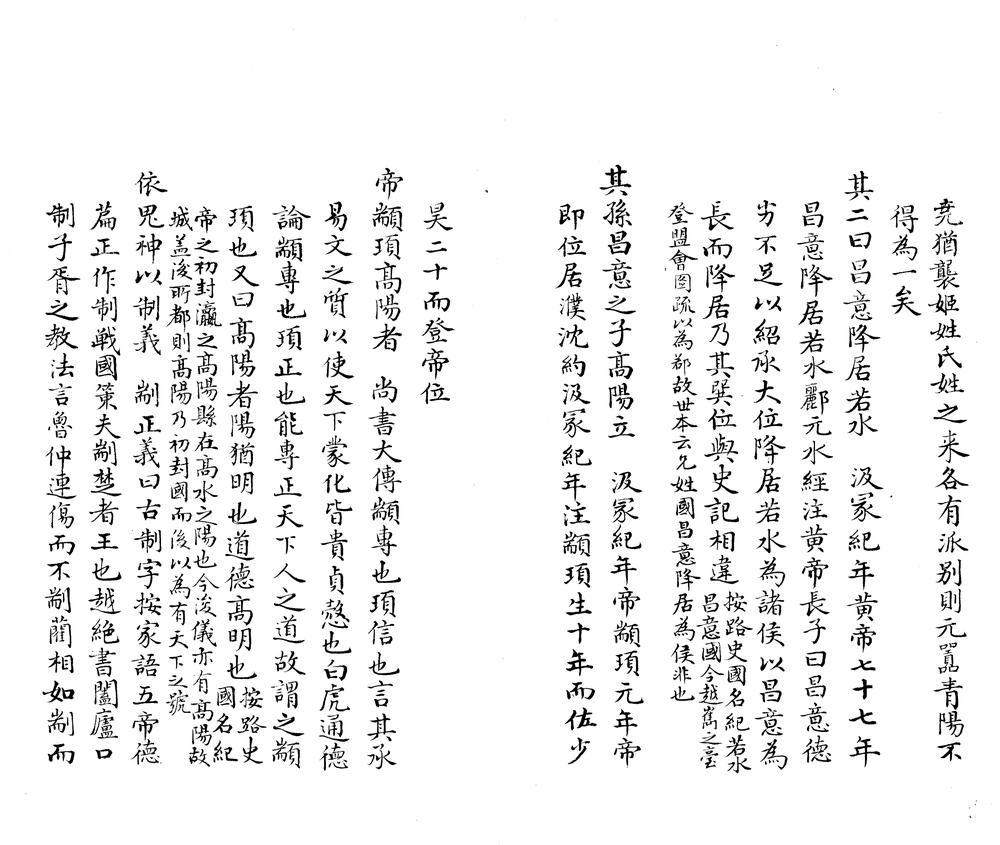 堯猶襲姬姓氏姓之来各有派别則元嚣青陽不
得為一矣
其二曰昌意降居若水　汲冡紀年黄帝七十七年
昌意降居若水酈元水經注黄帝長子曰昌意德
劣不足以紹承大位降居若水為諸侯以昌意為
長而降居乃其巽位與史記相違按路史國名紀若水
昌意國今越嶲之臺
登盟會圖疏以為鄀故世本云允姓國昌意降居為侯非也
其孫昌意之子髙陽立　汲冡紀年帝顓頊元年帝
即位居濮沈約汲冡紀年注顓頊生十年而佐少
昊二十而登帝位
帝顓頊髙陽者　尚書大傳顓專也頊信也言其承
易文之質以使天下蒙化皆貴貞慤也白虎通德
論顓專也頊正也能專正天下人之道故謂之顓
頊也又曰髙陽者陽猶明也道德髙明也按路史
國名紀
帝之初封瀛之髙陽縣在髙水之陽也今浚儀亦有髙陽故
城盖後所都則髙陽乃初封國而後以為有天下之號
依鬼神以制義　剬正義曰古制字按家語五帝德
篇正作制戰國策夫剬楚者王也越絶書闔廬口
制子胥之教法言魯仲連傷而不剬藺相如剬而